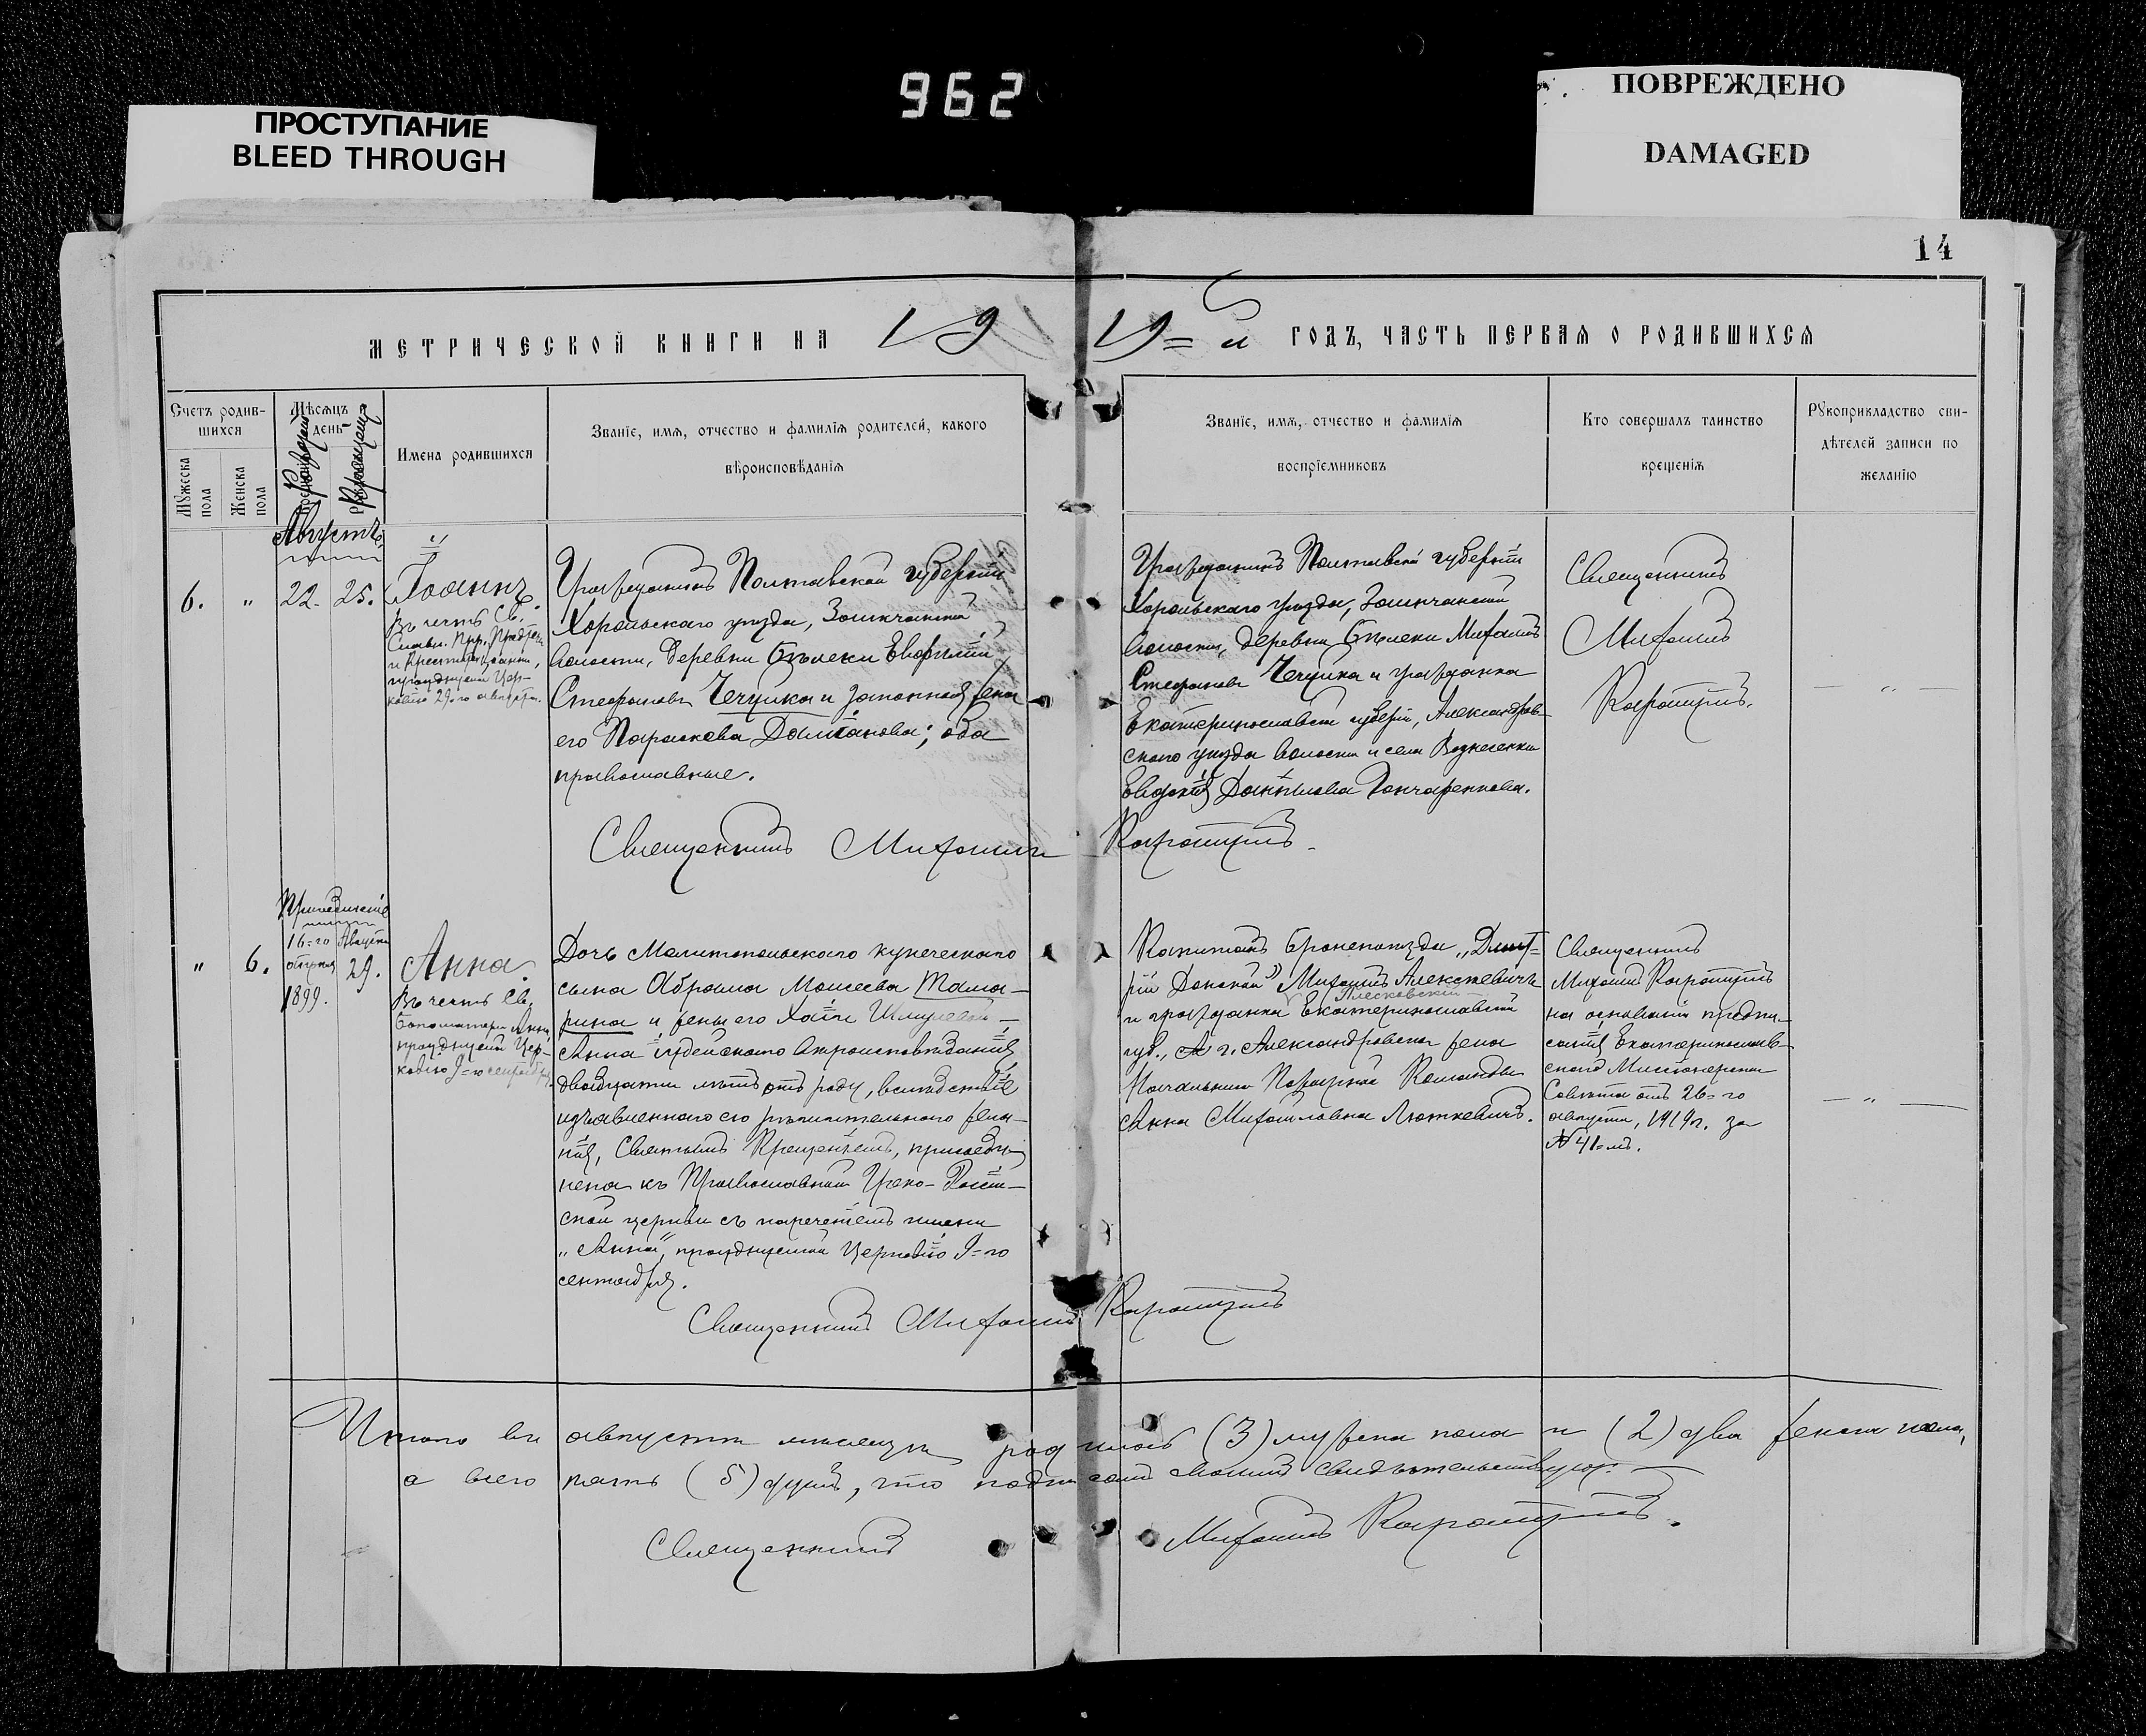 962
ПРОСТУПАНИЕ
BLEED THROUGH
ПОВРЕЖДЕНО
DAMAGED
14
МЕТРИЧЕСКОЙ КНИГИ НА 1919=й ГОДЪ, ЧАСТЬ ПЕРВАЯ О РОДИВШИХСЯ
Счетъ родив-
шихся
Мужеска
пола
Женска
пола
Мѣсяцъ
день
Рожденія
Крещенія
Имена родившихся
Званіе, имя, отчество и фамилія родителей, какого
вѣроисповѣданія
Званіе, имя, отчество и фамилія
воспріемниковъ
Кто совершалъ таинство
крещенія
Рукоприкладство сви-
дѣтелей записи по
желанію
Августъ
6. " 22. 25.
Іоаннъ.
Въ честь Св.
Славн. Прр. Предтечи
и Крестителя Іоанна,
празднуемаго Цер-
ковію 29-го августа.
Гражданинъ Полтавской губерніи
Хорольскаго уѣзда,
волости, деревни Евфимій
Стефановъ Чечуйка и законная жена
его Параскева Даміанова; оба
православные.
Гражданинъ Полтавской губерніи
Хорольскаго уѣзда,
волости, деревни Михаилъ
Стефановъ Чечуйка и гражданка
Екатеринославской губерніи, Александров-
скаго уѣзда волости и села Вознесенки
Евдокія Даніилова Гончаренкова.
Священникъ
Михаилъ
"
Священникъ Михаилъ
" 6.
16=го
апрѣля
1899.
Августа
29.
Анна.
Въ честь Св.
Богоматери Анны
празднуемой Цер-
ковію 9=го сентября.
Дочь Мелитопольскаго купеческаго
сына Абрама Моисеева Тама-
рина и жены его Хаи Шмулевой —
Анна іудейскаго вѣроисповѣданія,
двадцати лѣтъ отъ роду, вслѣдствіе
изъявленнаго ею рѣшительнаго жела-
нія, Святымъ Крещеніемъ, присоеди-
нена къ Православной Греко-Россій-
ской церкви съ нареченіемъ имени
„Анна", празднуемой Церковію 9=го
сентября.
Капитанъ бронепоѣзда „Димит-
рій Донской" Михаилъ Алексѣевичъ
Плесковскій
и гражданка Екатеринославской
губ., г. Александровска жена
Начальника Пожарной Команды
Анна Михаиловна Люткевичъ.
Священникъ
Михаилъ
на основаніи предпи-
санія Екатеринослав-
скаго Миссіонерскаго
Совѣта отъ 26=го
августа, 1919г. за
№ 41=мъ.
"
Священникъ Михаилъ
Итого въ августѣ мѣсяцѣ родилось (3) мужска пола и (2) два женска пола,
а всего пять (5) душъ, что подписомъ своимъ свидѣтельствую:
Священникъ Михаилъ